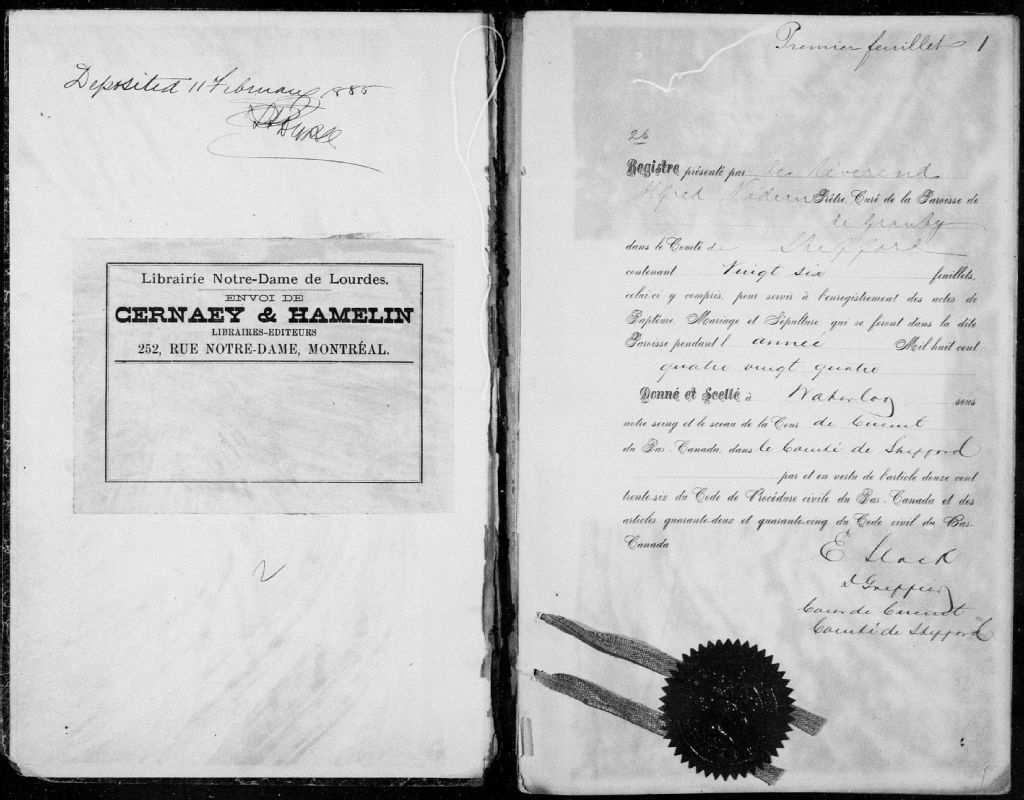 Deposited 11 February 1885
Librairie Notre-Dame de Lourdes.
ENVOI DE
CERNAEY & HAMELIN
LIBRAIRES-EDITEURS
252, RUE NOTRE-DAME, MONTRÉAL.
2
Premier feuillet 1
26
Registre présenté par le Révérend
Alfred Prêtre, Curé de la Paroisse de
de Granby
dans le Comté de Shefford
contenant Vingt six feuillets,
celui-ci y compris, pour servir à l'enregistrement des actes de
Baptême, Mariage et Sépulture qui se feront dans la dite
Paroisse pendant l année Mil huit cent
quatre vingt quatre
Donné et Scellé à Waterloo sous
notre seing et le sceau de la Cour de Circuit
du Bas-Canada, dans le Comté de Shefford
par et en vertu de l'article douze cent
trente-six du Code de Procédure civile du Bas-Canada et des
articles quarante-deux et quarante-cinq du Code civil du Bas-
Canada
E Slack
d Greffier
Cour de Circuit
Comté de Shefford